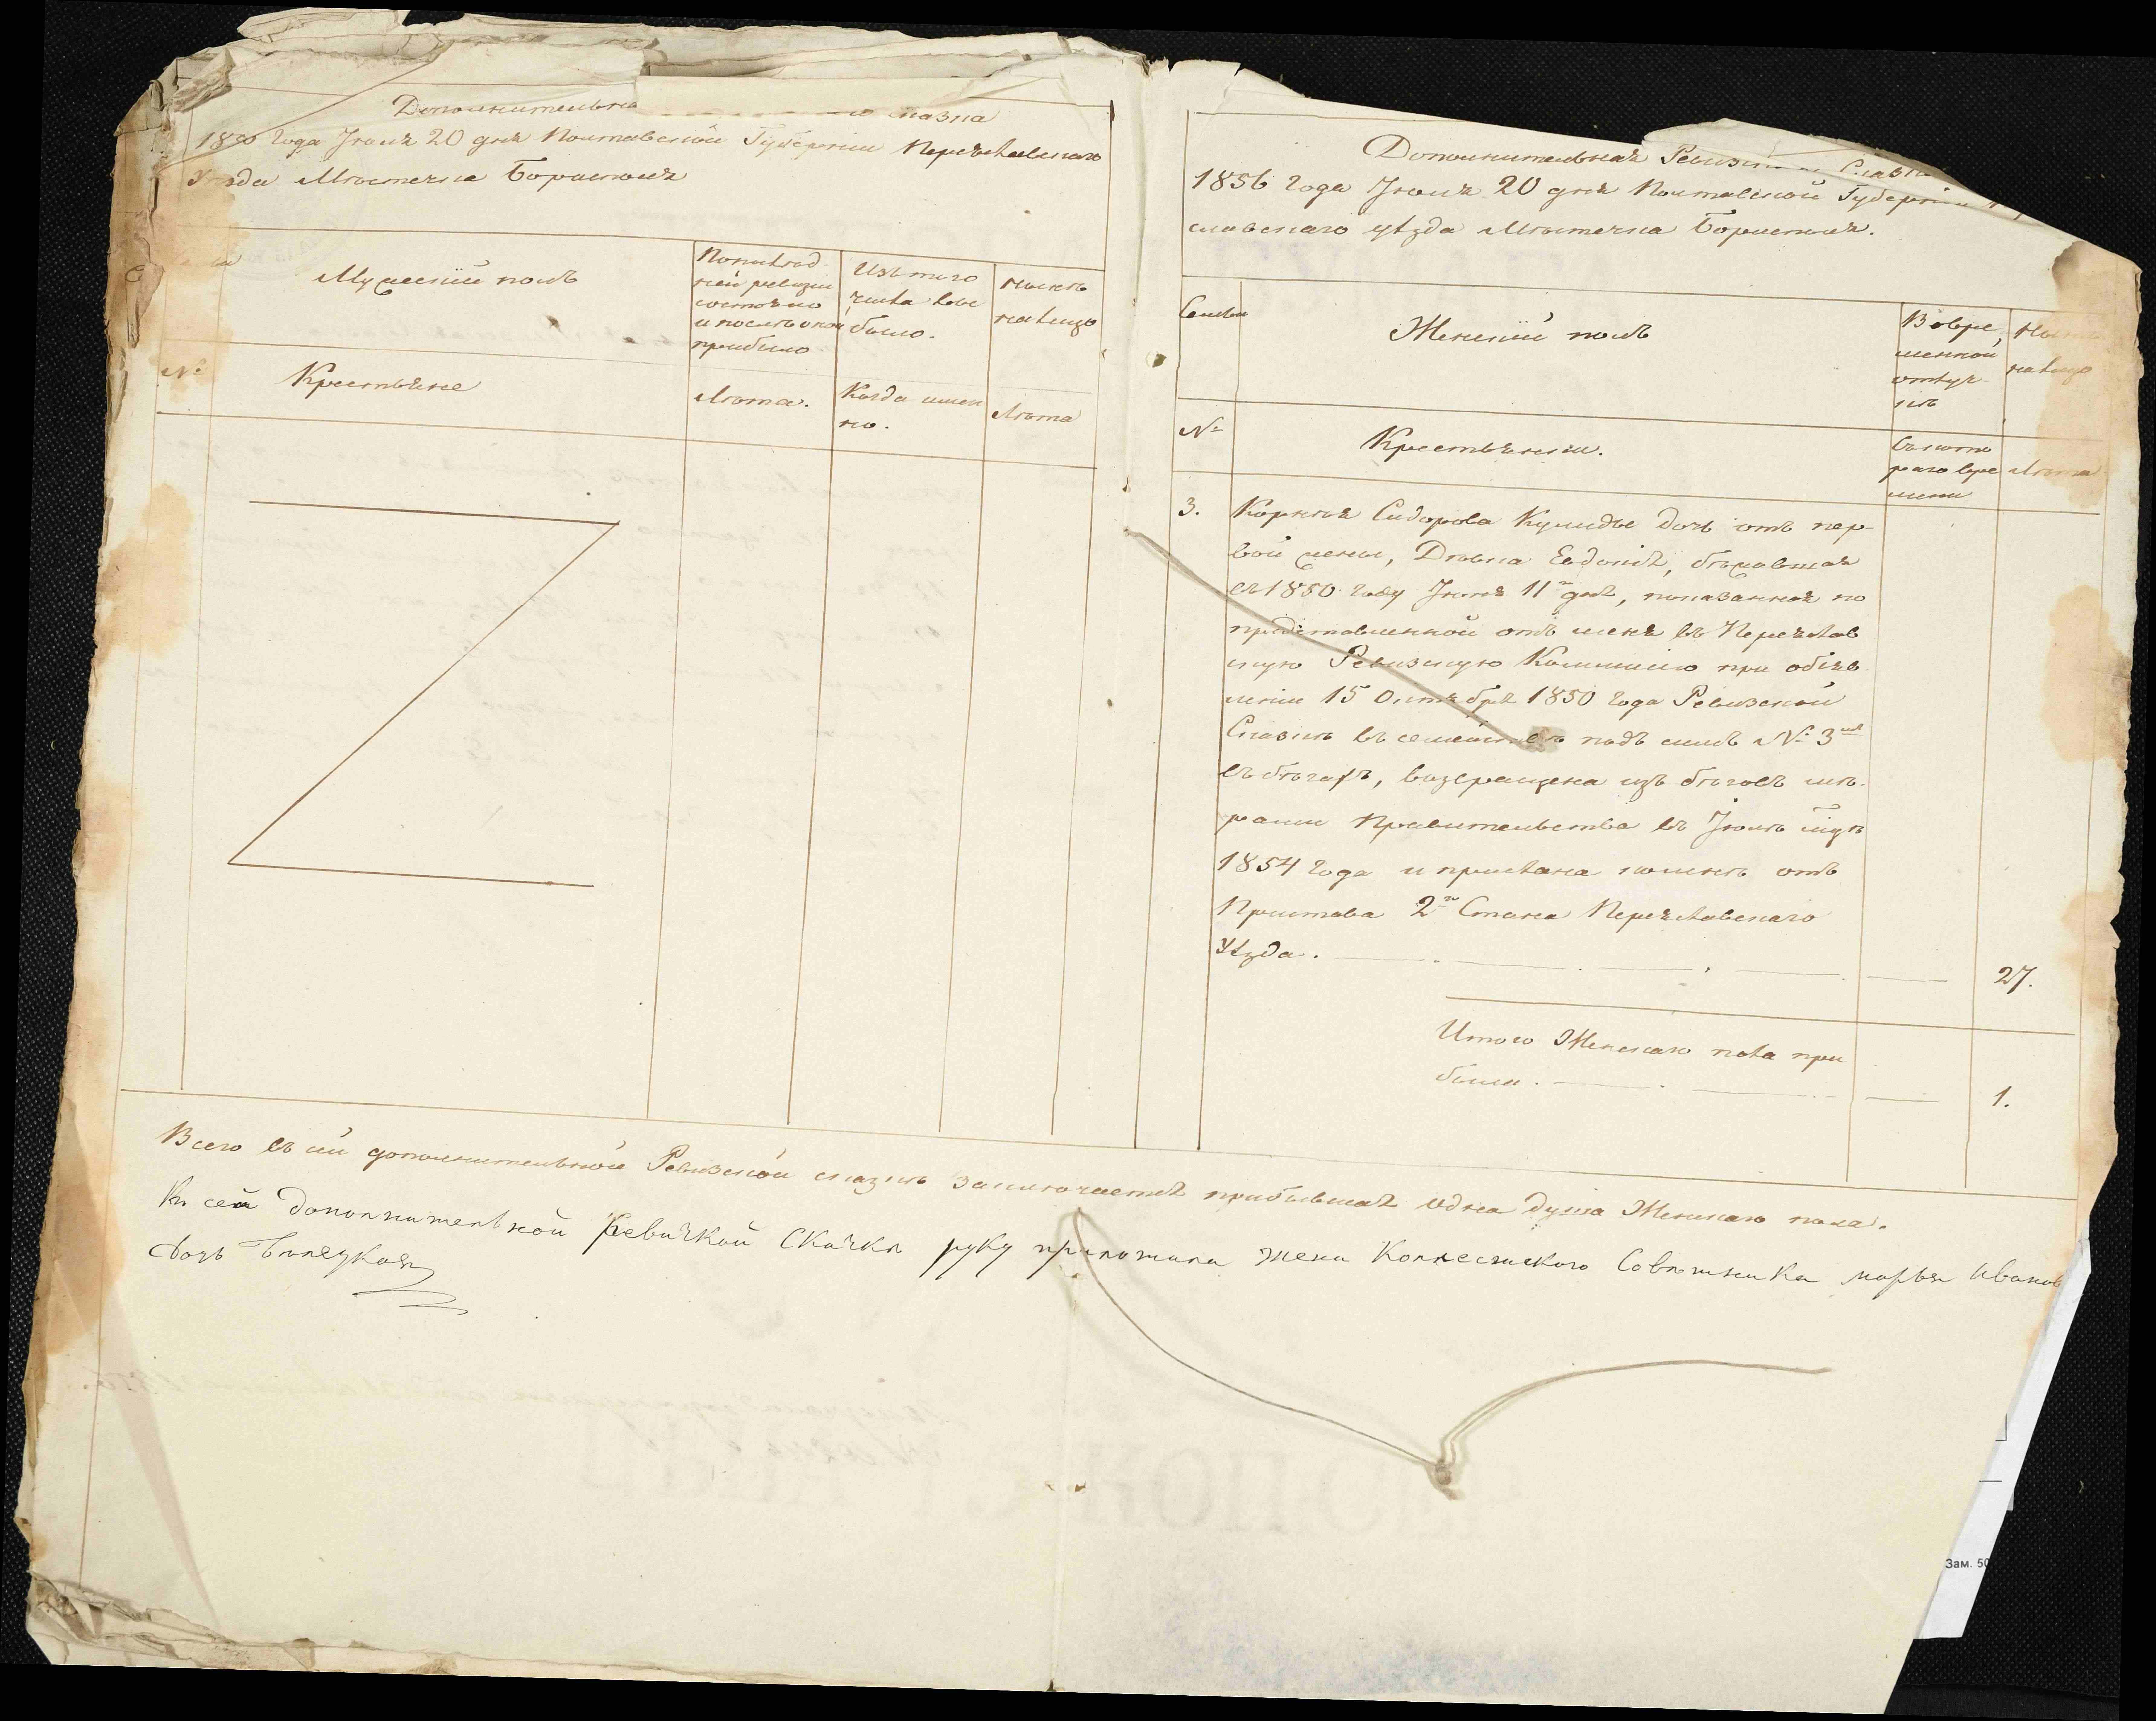 Дополнительна сказка
18 года Июля 20 дня Полтавской Губернии Переяславскаго
Уезда Местечка Борисполя
Мужеский полъ
По послѣд-
ней ревизіи
состояло
и послѣ оной
прибыло
Изъ того
числа вы
было.
Нынѣ
налицо
№
Крестьяне
Лѣта.
Когда имен
но.
Лѣта
Дополнительная Ревизская Сказка
1856 года Июля 20 дня Полтавской Губерніи
славскаго уѣзда Мѣстечка Борисполя.
Семьи
Женскій полъ
Во вре
менной
отлуч-
кѣ
Нынѣ
налицо
№
Крестьянки.
Съ кото
раго вре
мени
Лѣта
3.
Корнѣя Сидорова Кулиды Дочь отъ пер-
вой жены, Дѣвка Евдокія, бѣжавшая
въ 1850 году Июня 11го дня, показанная по
представленной отъ меня въ Переяслав
скую Ревизскую Коммисію при объяв
леніи 15 Октября 1850 года Ревизской
Сказкѣ въ семействѣ подъ симъ № 3мъ
въ бѣгахъ, возвращена изъ бѣговъ мѣ-
рами Правительства въ Июлѣ мцѣ
1854 года и прислана ко мнѣ отъ
Пристава 2го Стана Переяславскаго
Уѣзда.
27.
Итого Женскаго пола при
были.
1.
Всего въ сей дополнительной Ревизской сказкѣ заключается прибывшая одна душа Женскаго пола.
Къ сей дополнительной ревизкой Сказки руку приложила жена Коллесткого Советника марья Иванов
дочь Билецкая
Зам. 50